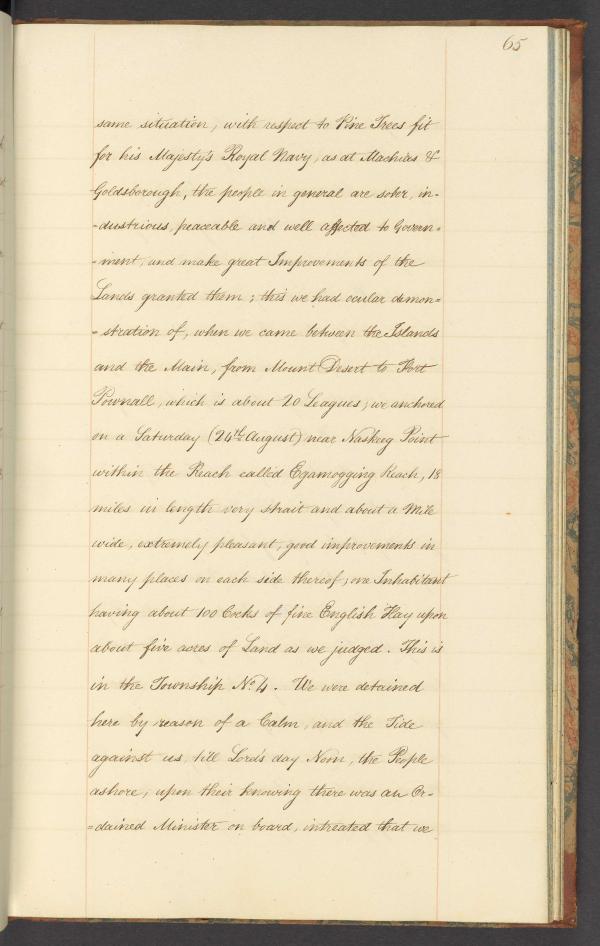 65
same situation, with respect to Pine Trees fit
for his Majesty's Royal Navy, as at Machias &
Goldsborough, the people in general are sober, in-
-dustrious, peaceable and well affected to Govern=
=ment, and make great Improvements of the
Lands granted them; this we had ocular demon=
=stration of, when we came between the Islands
and the Main, from Mount Desert to Fort
Pownall, which is about 20 Leagues; we anchored
on a Saturday (24th August) near Naskeeg Point
within the Reach called Egamogging Reach, 18
miles in length very strait and about a Mile
wide, extremely pleasant, good improvements in
many places on each side thereof, one Inhabitant
having about 100 Cocks of fine English Hay upon
about five acres of Land as we judged. This is
in the Township No. 4. We were detained
here by reason of a Calm, and the Tide
against us, till Lord's day Noon, the People
ashore, upon their knowing there was an Or-
=dained Minister on board, intreated that we